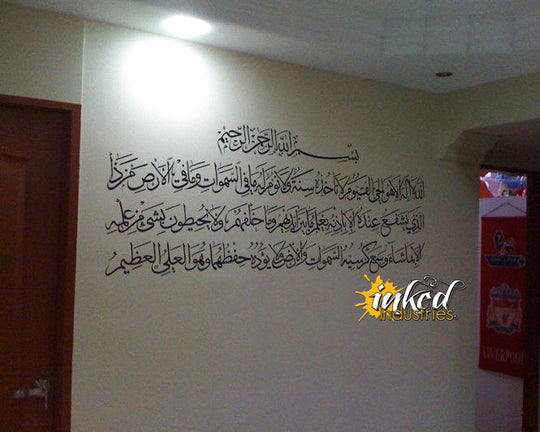 بسم الله الرحمن الرحيم
الله لا إله إلا هو الحي القيوم لا تأخذه سنة ولا نوم له ما في السموات وما في الأرض من ذا
الذي يشفع عنده إلا بإذنه يعلم ما بين أيديهم وما خلفهم ولا يحيطون بشيء من علمه
إلا بما شاء وسع كرسيه السموات والأرض ولا يؤده حفظهما وهو العلي العظيم
inked
industries
LIVERPOOL